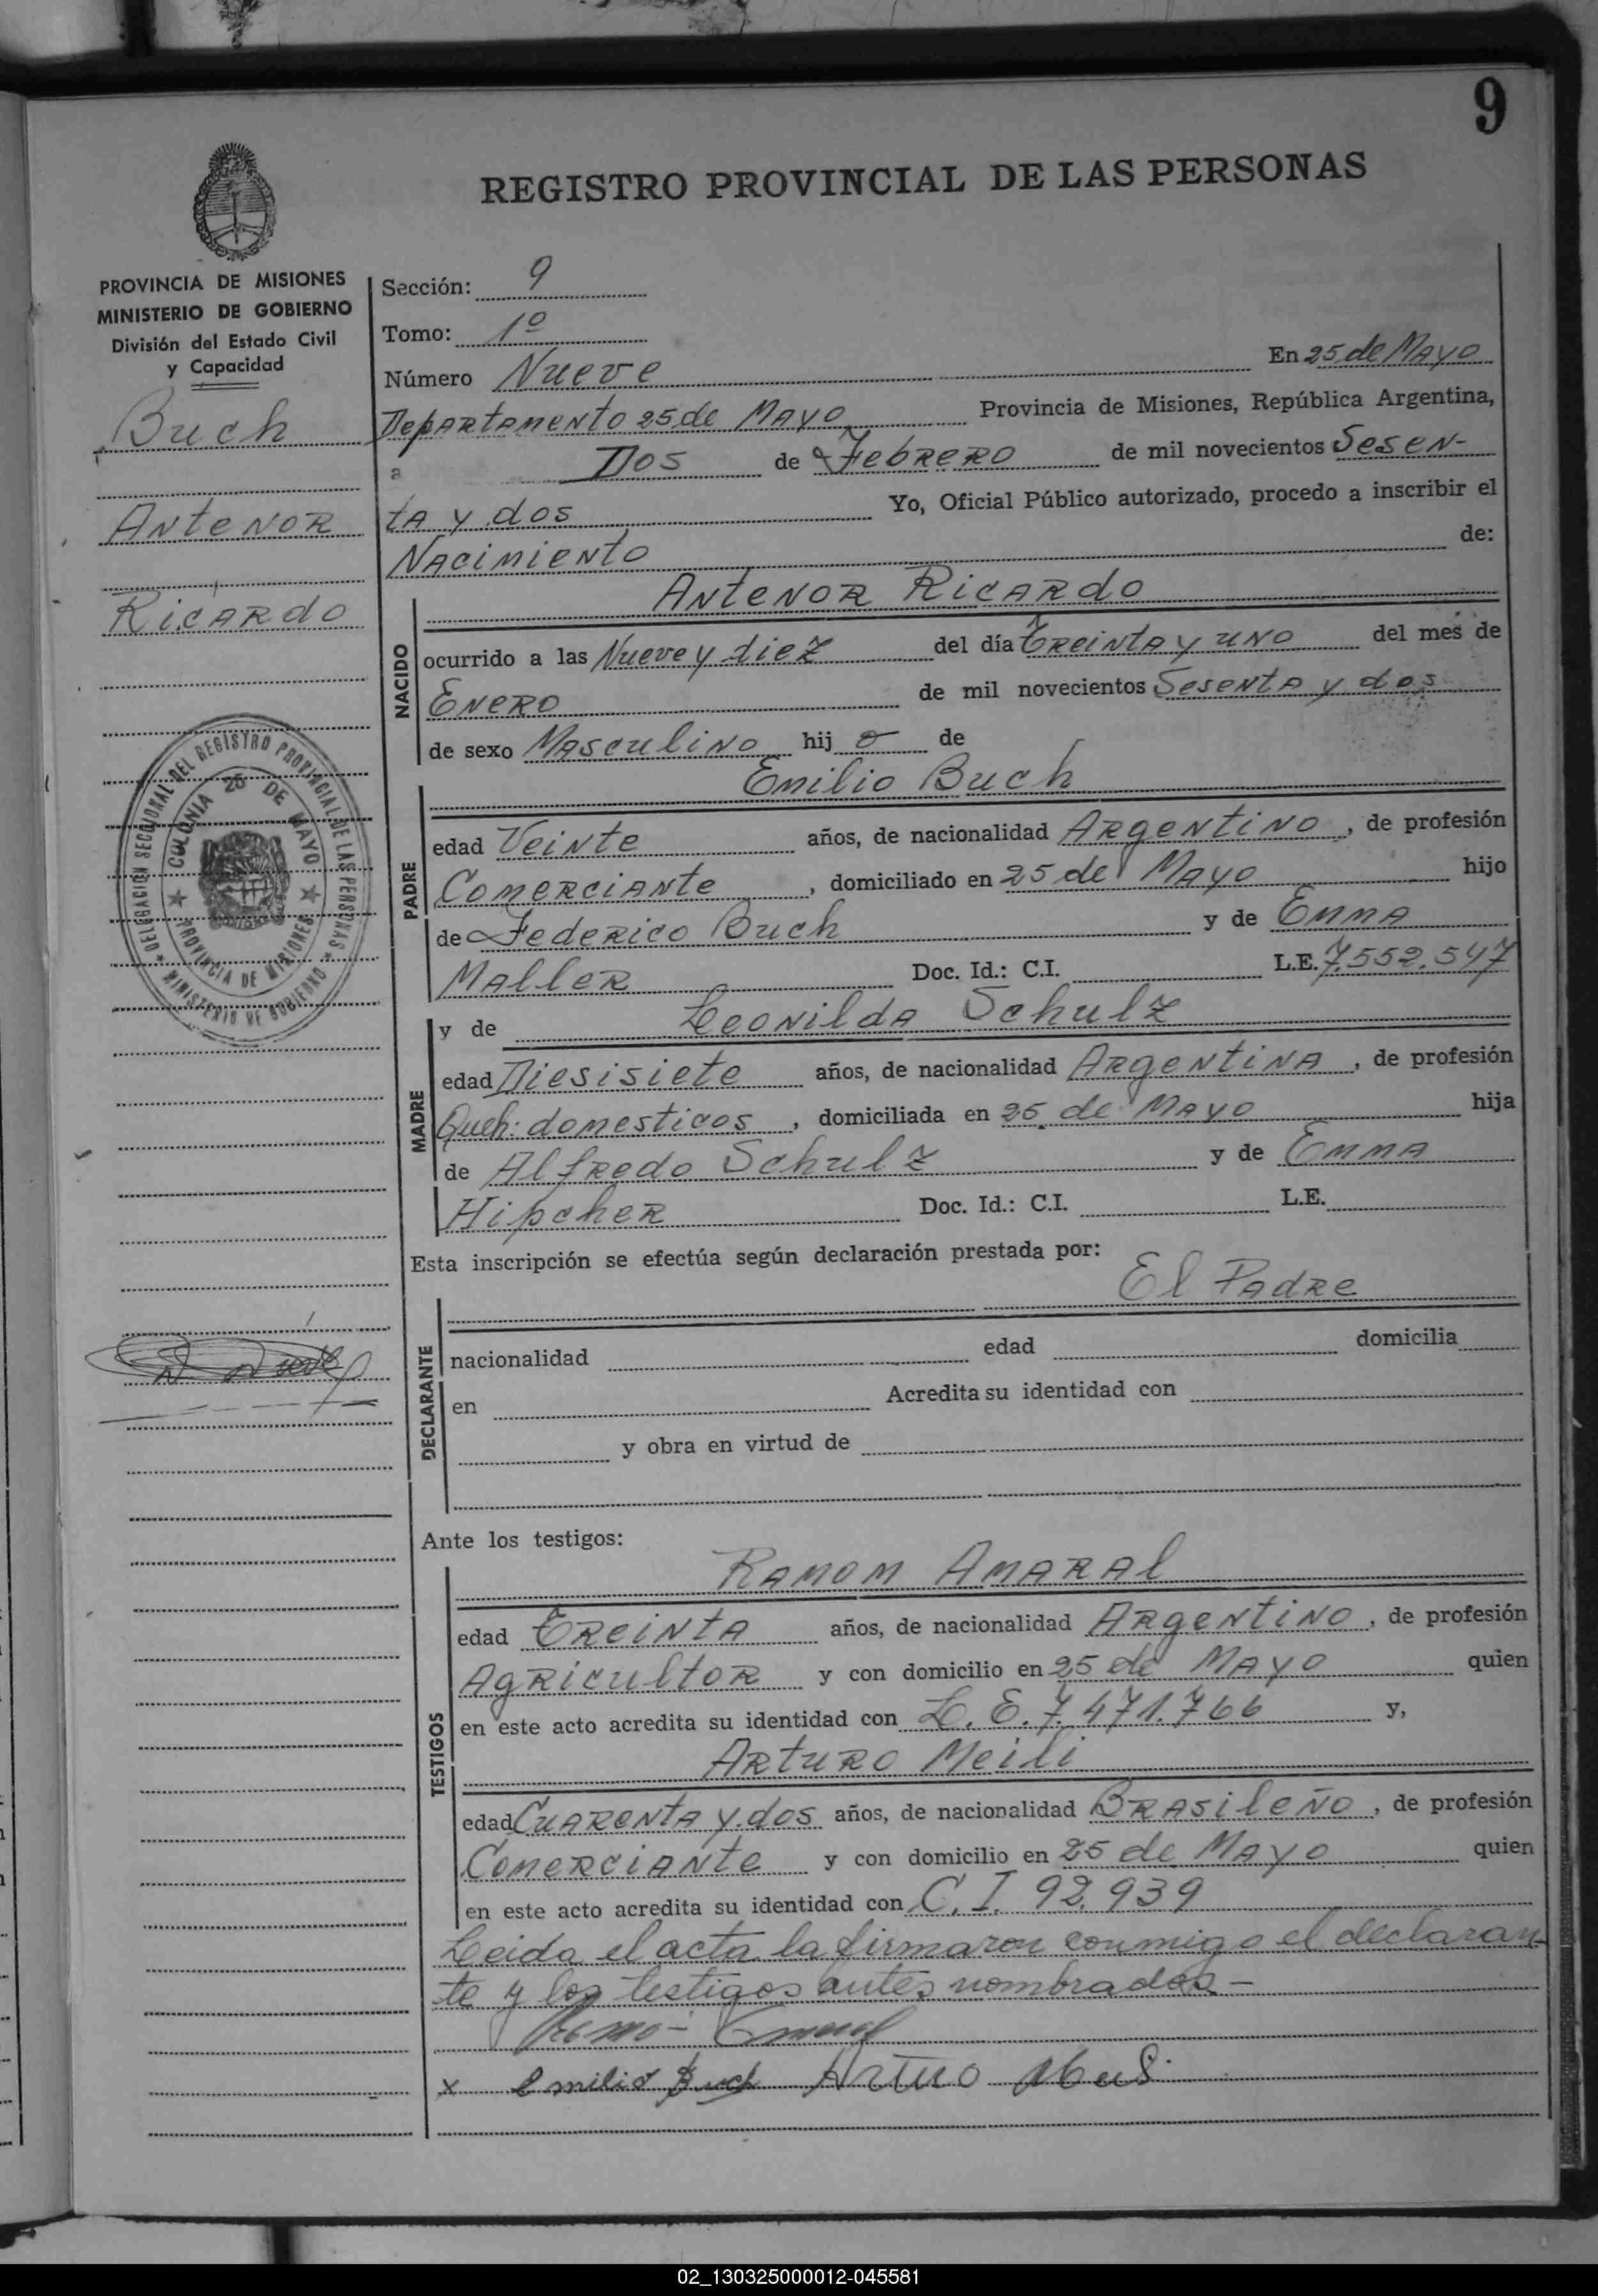 9
REGISTRO PROVINCIAL DE LAS PERSONAS
PROVINCIA DE MISIONES
MINISTERIO DE GOBIERNO
División del Estado Civil
y Capacidad
Buch
Antenor
Ricardo
DELEGACION SECCIONAL DEL REGISTRO PROVINCIAL DE LAS PERSONAS
MINISTERIO DE GOBIERNO
COLONIA 25 DE MAYO
PROVINCIA DE MISIONES
Sección: 9
Tomo: 1º
Número Nueve En 25 de Mayo
Departamento 25 de Mayo Provincia de Misiones, República Argentina,
a Dos de Febrero de mil novecientos Sesen-
ta y dos Yo, Oficial Público autorizado, procedo a inscribir el
Nacimiento de:
Antenor Ricardo
NACIDO
ocurrido a las Nueve y diez del día treinta y uno del mes de
Enero de mil novecientos Sesenta y dos
de sexo Masculino hij o de
Emilio Buch
PADRE
edad Veinte años, de nacionalidad Argentino, de profesión
Comerciante, domiciliado en 25 de Mayo hijo
de Federico Buch y de Emma
Maller Doc. Id.: C.I. L.E. 7.552.547
y de Leonilda Schulz
MADRE
edad Diesisiete años, de nacionalidad Argentina, de profesión
Queh. domesticos, domiciliada en 25 de Mayo hija
de Alfredo Schulz y de Emma
Hipcher Doc. Id.: C.I. L.E.
Esta inscripción se efectúa según declaración prestada por:
El Padre
DECLARANTE
nacionalidad edad domicilia
en Acredita su identidad con
y obra en virtud de
Ante los testigos:
Ramom Amaral
TESTIGOS
edad treinta años, de nacionalidad Argentino, de profesión
Agricultor y con domicilio en 25 de Mayo quien
en este acto acredita su identidad con L.E. 7.471.766 y,
Arturo Meili
edad Cuarenta y dos años, de nacionalidad Brasileño, de profesión
Comerciante y con domicilio en 25 de Mayo quien
en este acto acredita su identidad con C.I. 92.939
Leida el acta la firmaron conmigo el declaran-
te y los testigos antes nombrados -
x emilio Buch Arturo
02_130325000012-045581